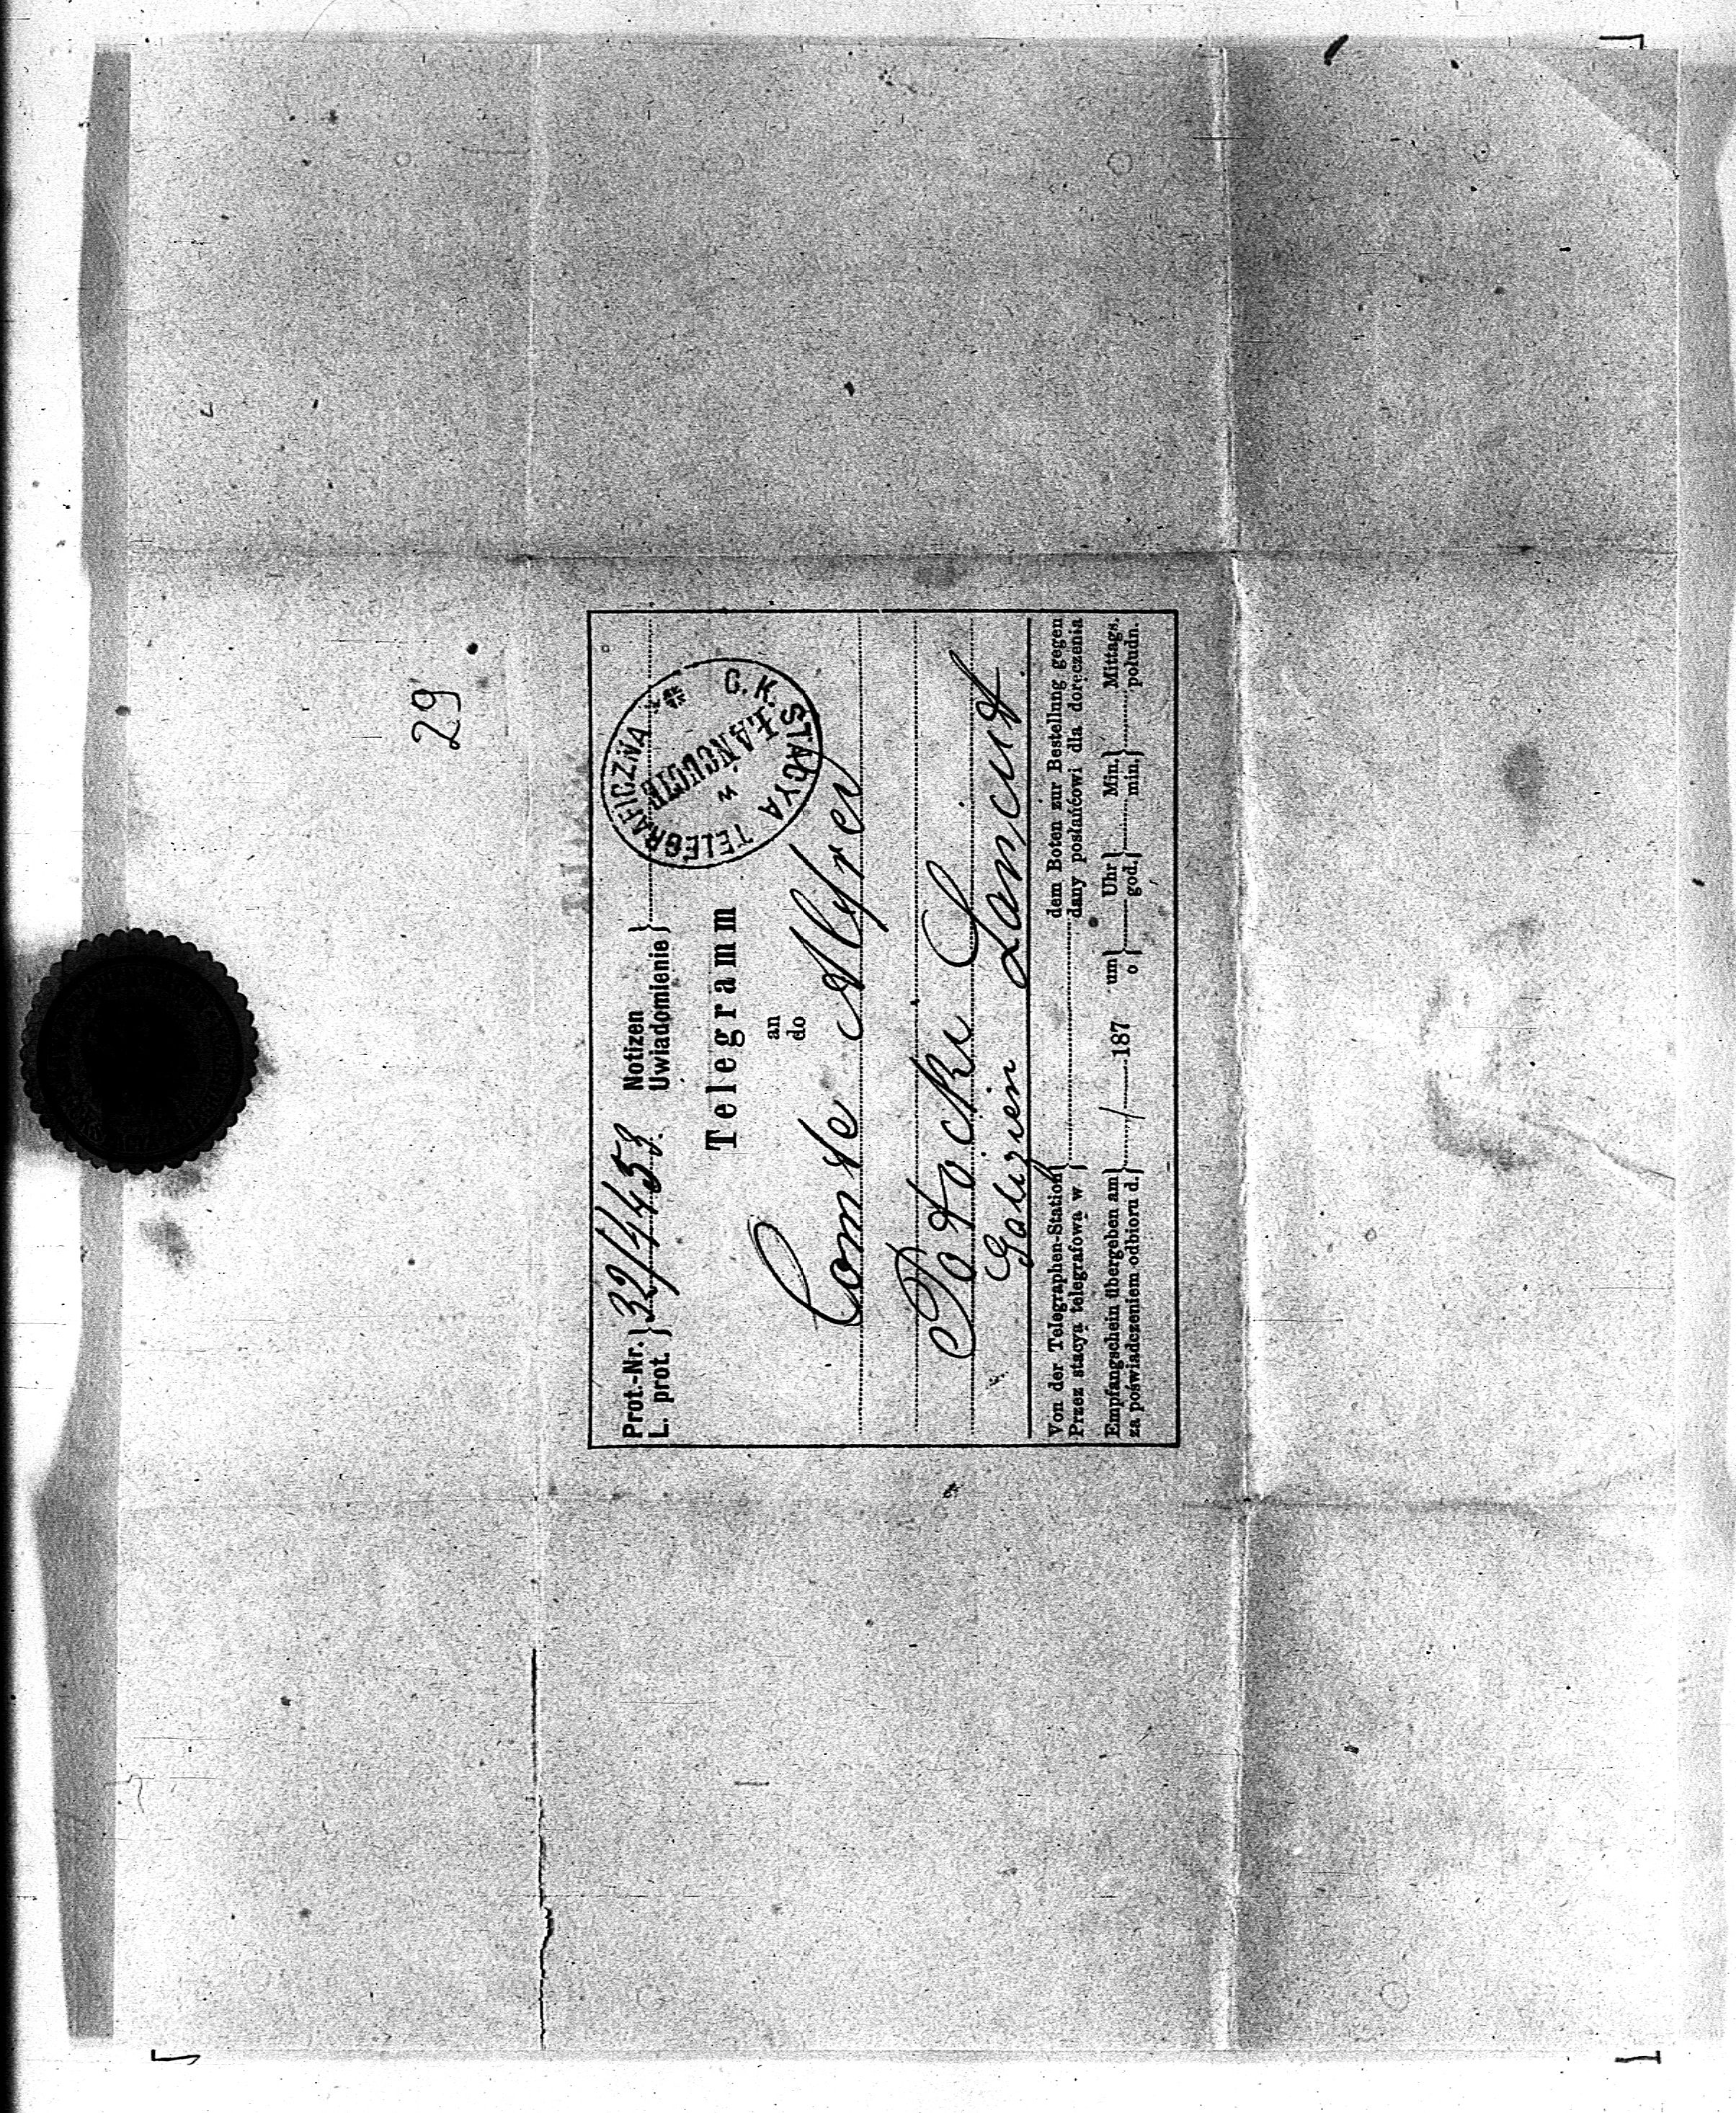 29
Prot.-Nr. } 32/4453 Notizen }
L. prot. } Uwiadomienie }
C. K. STACYA TELEGRAFICZNA
w
ŁAŃCUCIE
Telegramm
an
do
Comte Alfred
Potocki
Galizien Lancut
Von der Telegraphen-Station } dem Boten zur Bestellung gegen
Przez stacyą telegrafową w } dany posłańcowi dla doręczenia
Empfangschein übergeben am } / 187 um } Uhr } Min. } Mittags.
za poświadczeniem odbioru d. } o } god. } min. } połudn.